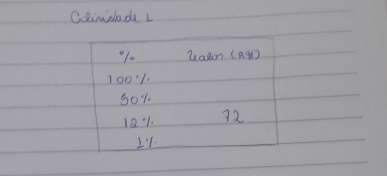 Atividade 1
% Valor (R$)
100%
50%
12% 72
1%